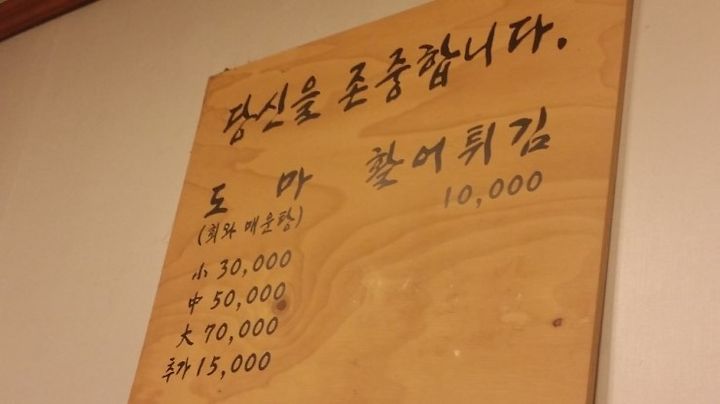 당신을 존중합니다.
도 마
(회와 매운탕)
小 30,000
中 50,000
大 70,000
추가 15,000
활어튀김
10,000